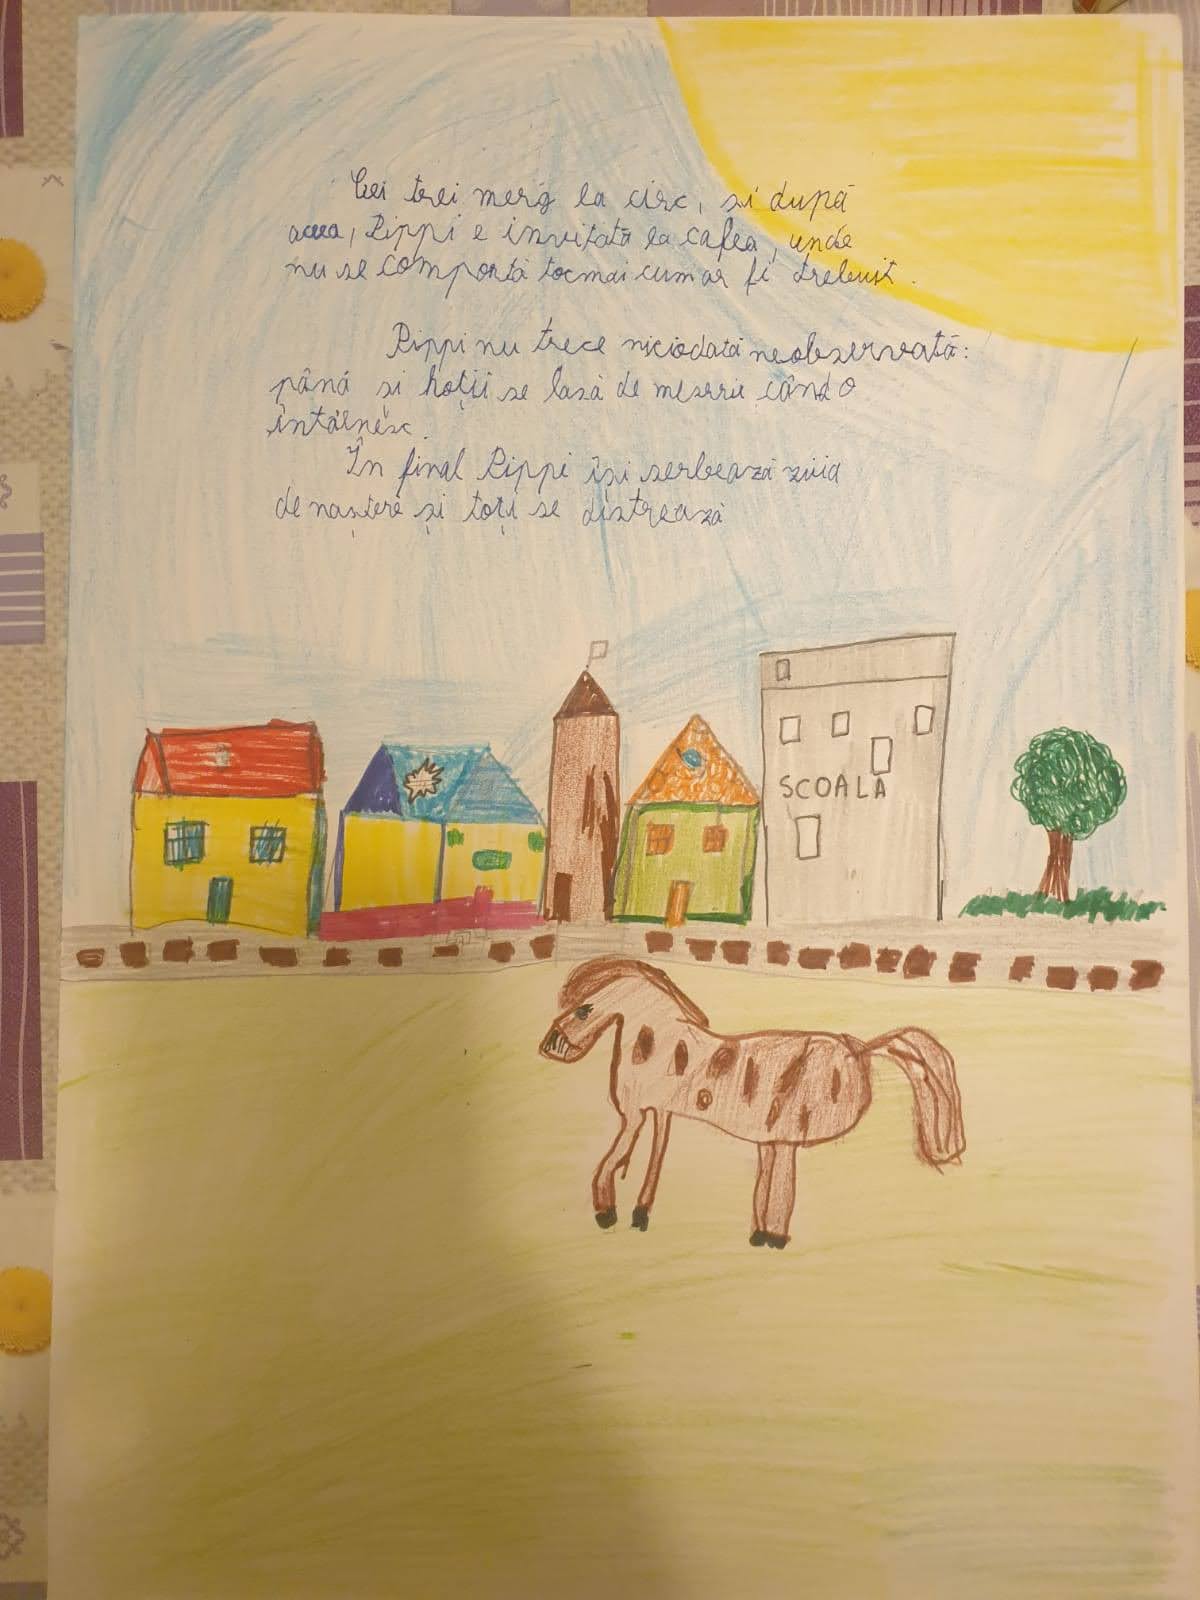 Cei trei merg la circ, și după
aceea, Pippi e invitată la cafea, unde
nu se comportă tocmai cum ar fi trebuit.
Pippi nu trece niciodată neobservată:
până și hoții se lasă de meserie când o
întâlnesc.
În final Pippi își serbează ziua
de naștere și toți se distrează
SCOALA